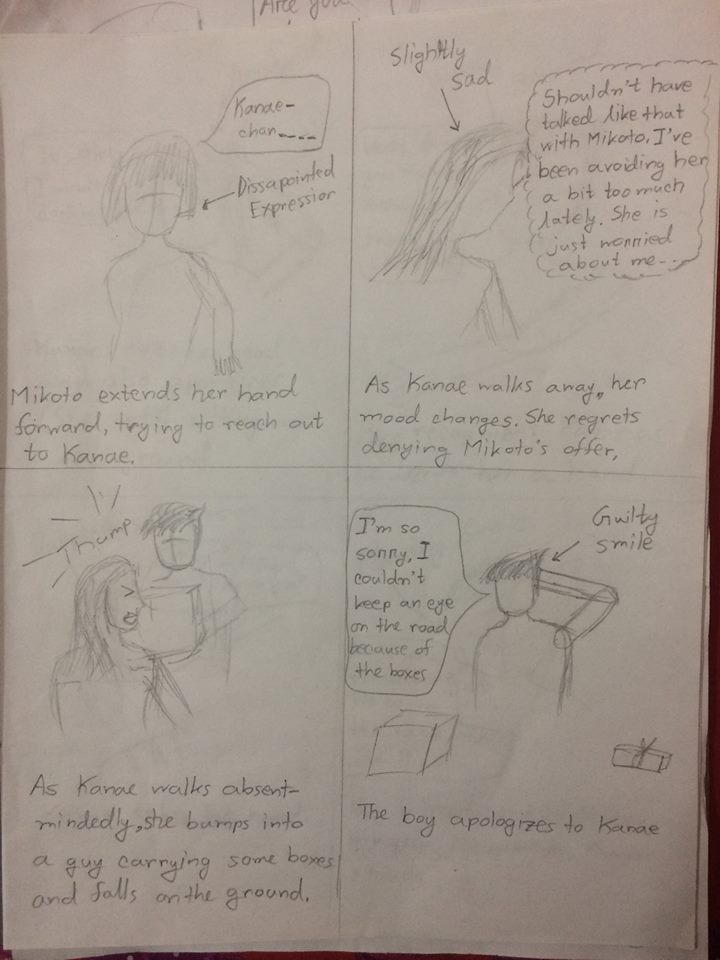 Are you
Kanae-
chan----
Dissapointed
Expression
Mikoto extends her hand
forward, trying to reach out
to Kanae.
Slightly
sad
Shouldn't have
talked like that
with Mikoto. I've
been avoiding her
a bit too much
lately. She is
just worried
about me---
As Kanae walks away, her
mood changes. She regrets
denying Mikoto's offer,
Thump
As Kanae walks absent-
mindedly, she bumps into
a guy carrying some boxes
and falls on the ground.
I'm so
sorry, I
couldn't
keep an eye
on the road
because of
the boxes
Guilty
smile
The boy apologizes to Kanae